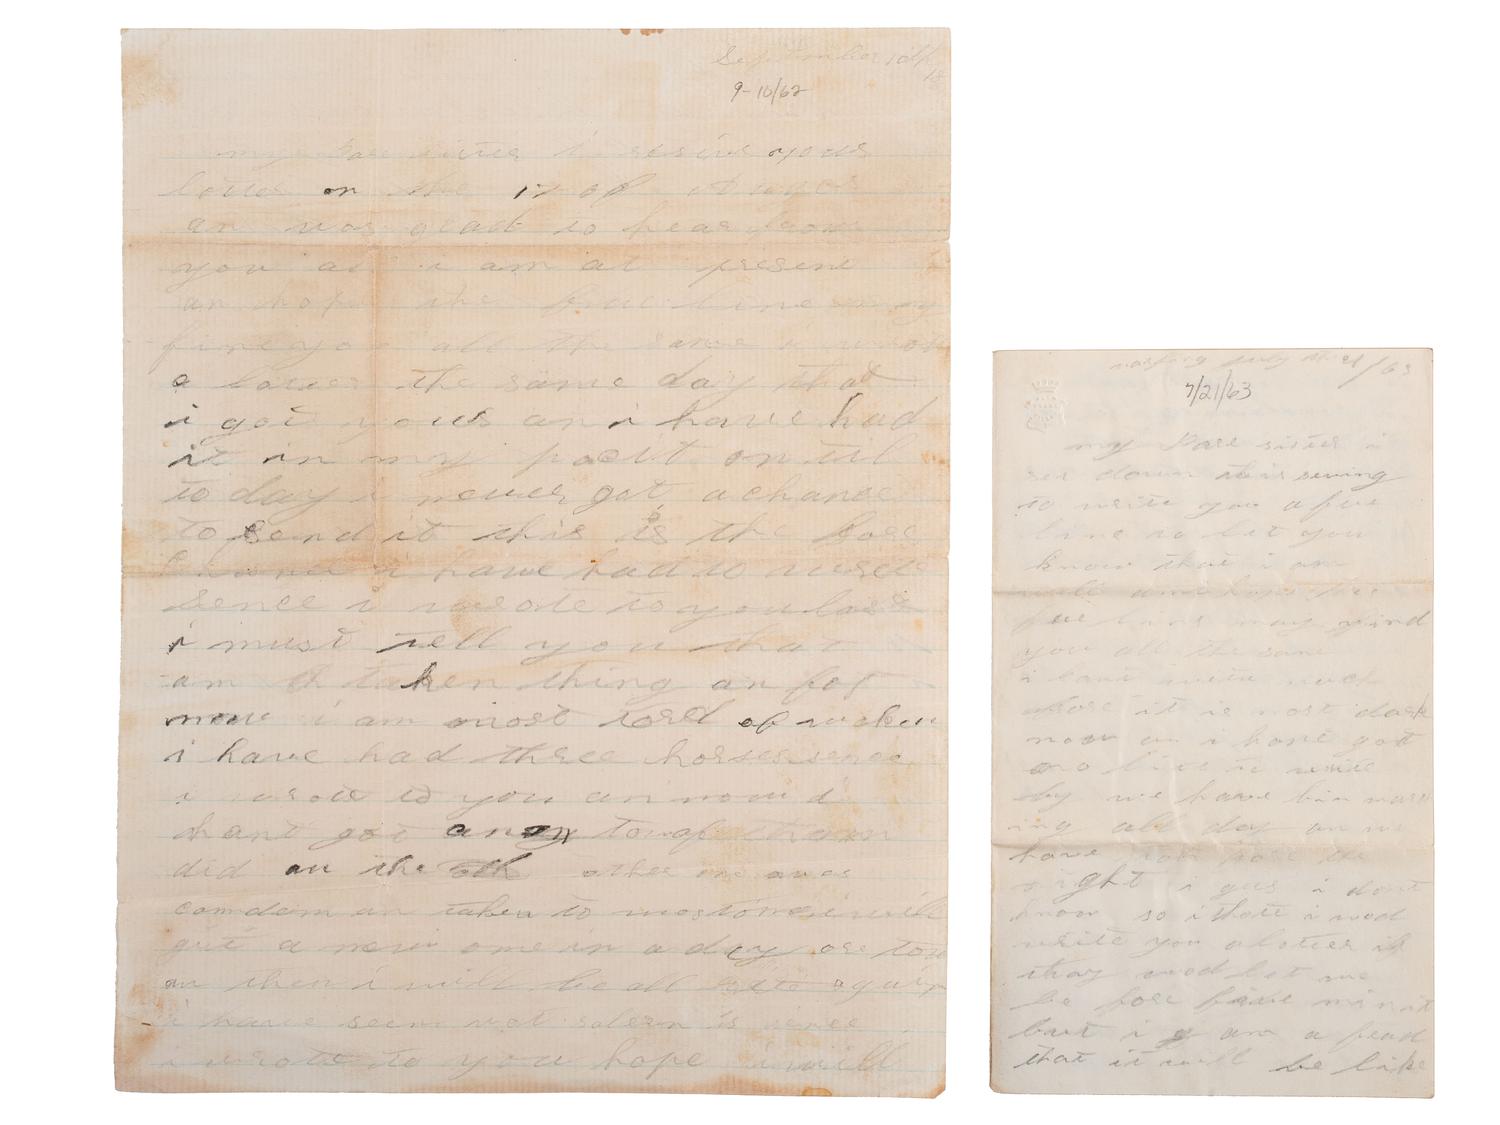 September 10th
18
9-10/62
my Dare sister i reseive yours
letter on the 17 of
an was glad to hear from
you as i am at present
an hope the few line may
fine you all the same i wrote
a letter the same day that
i got yours an i have had
it in my pocit on til
to day i never got a chance
to send it this is the
i have had to
sence i wrote to you last
i must tell you that
am taken thing an for
now i am most tord of
i have had three horses sence
i wrote to you an now i
hant got anny
did on the oth other one was
comdem an taken to i will
get a new one in a day ore tow
an then i will be all rite again
i have seen sence
i wrote to you hope i will
July the 21/63
7/21/63
my Dare sister i
set down this evning
to write you a few
line to let you
know that i am
well and hope the
few line may find
you all the same
i cant write much
more it is most dark
now an i have got
no lite to write
by we have bin march
ing all day an we
have
night i gus i dont
know so i thort i wod
write you a letter if
thay wod let me
be fore five minit
but i g am a feard
that it will be like